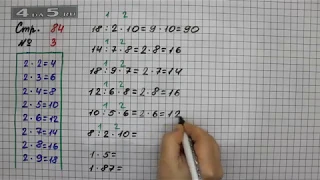 4 на 5.ru
Стр. 84
№ 3
2·2=4
2·3=6
2·4=8
2·5=10
2·6=12
2·7=14
2·8=16
2·9=18
1 2
18:2·10=9·10=90
1 2
14:7·8=2·8=16
1 2
18:9·7=2·7=14
1 2
12:6·8=2·8=16
1 2
10:5·6=2·6=12
1 2
8:2·10=
1·5=
1·87=